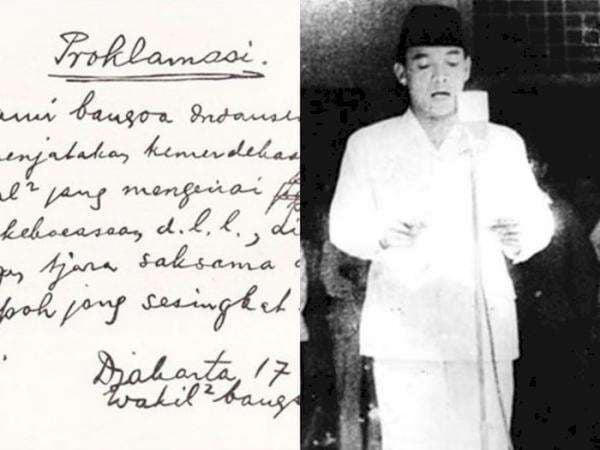 Proklamasi.
ami bangsa Indones
enjatakan kemerdekaa
al² jang mengenai
kekoeasaan d.l.l., di
an tjara saksama
poh jang sesingkat
Djakarta 17
Wakil² bangs